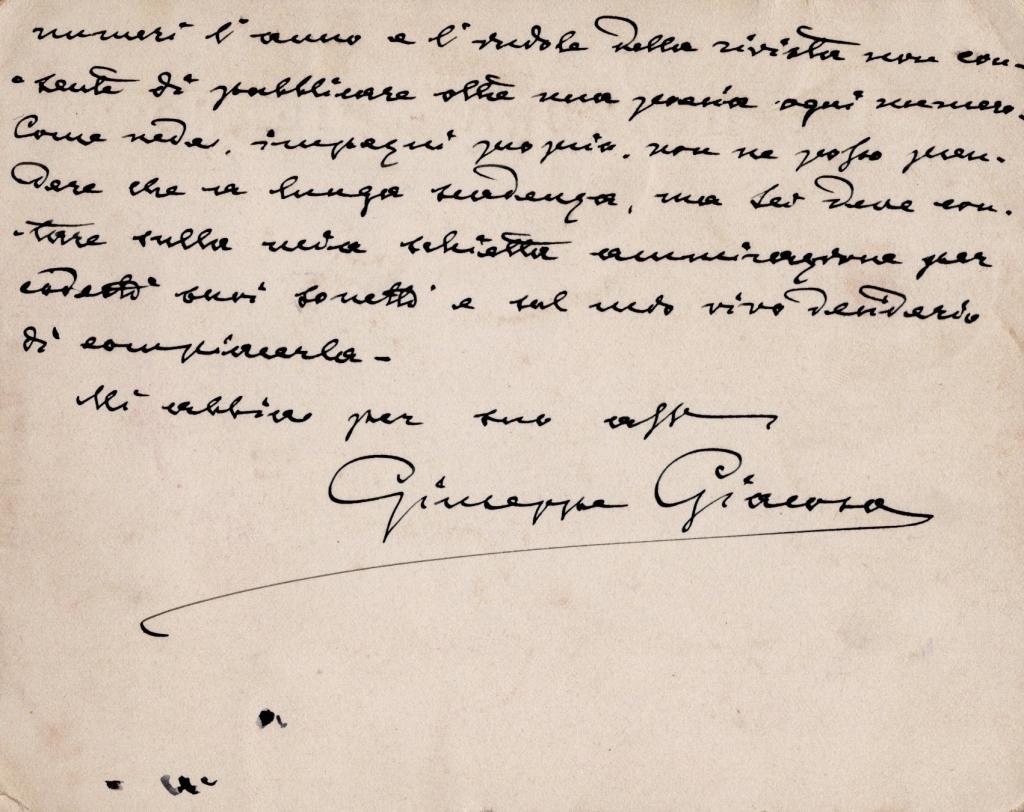 numeri l'anno e l'indole della rivista non con-
-sente di pubblicare oltre una poesia ogni numero.
Come vede, impegni proprio, non ne posso pren-
dere che a lunga scadenza, ma Lei deve con-
-tare sulla mia schietta ammirazione per
codesti suoi sonetti e sul mio vivo desiderio
di compiacerla -
Mi abbia per suo aff
Giuseppe Giacosa